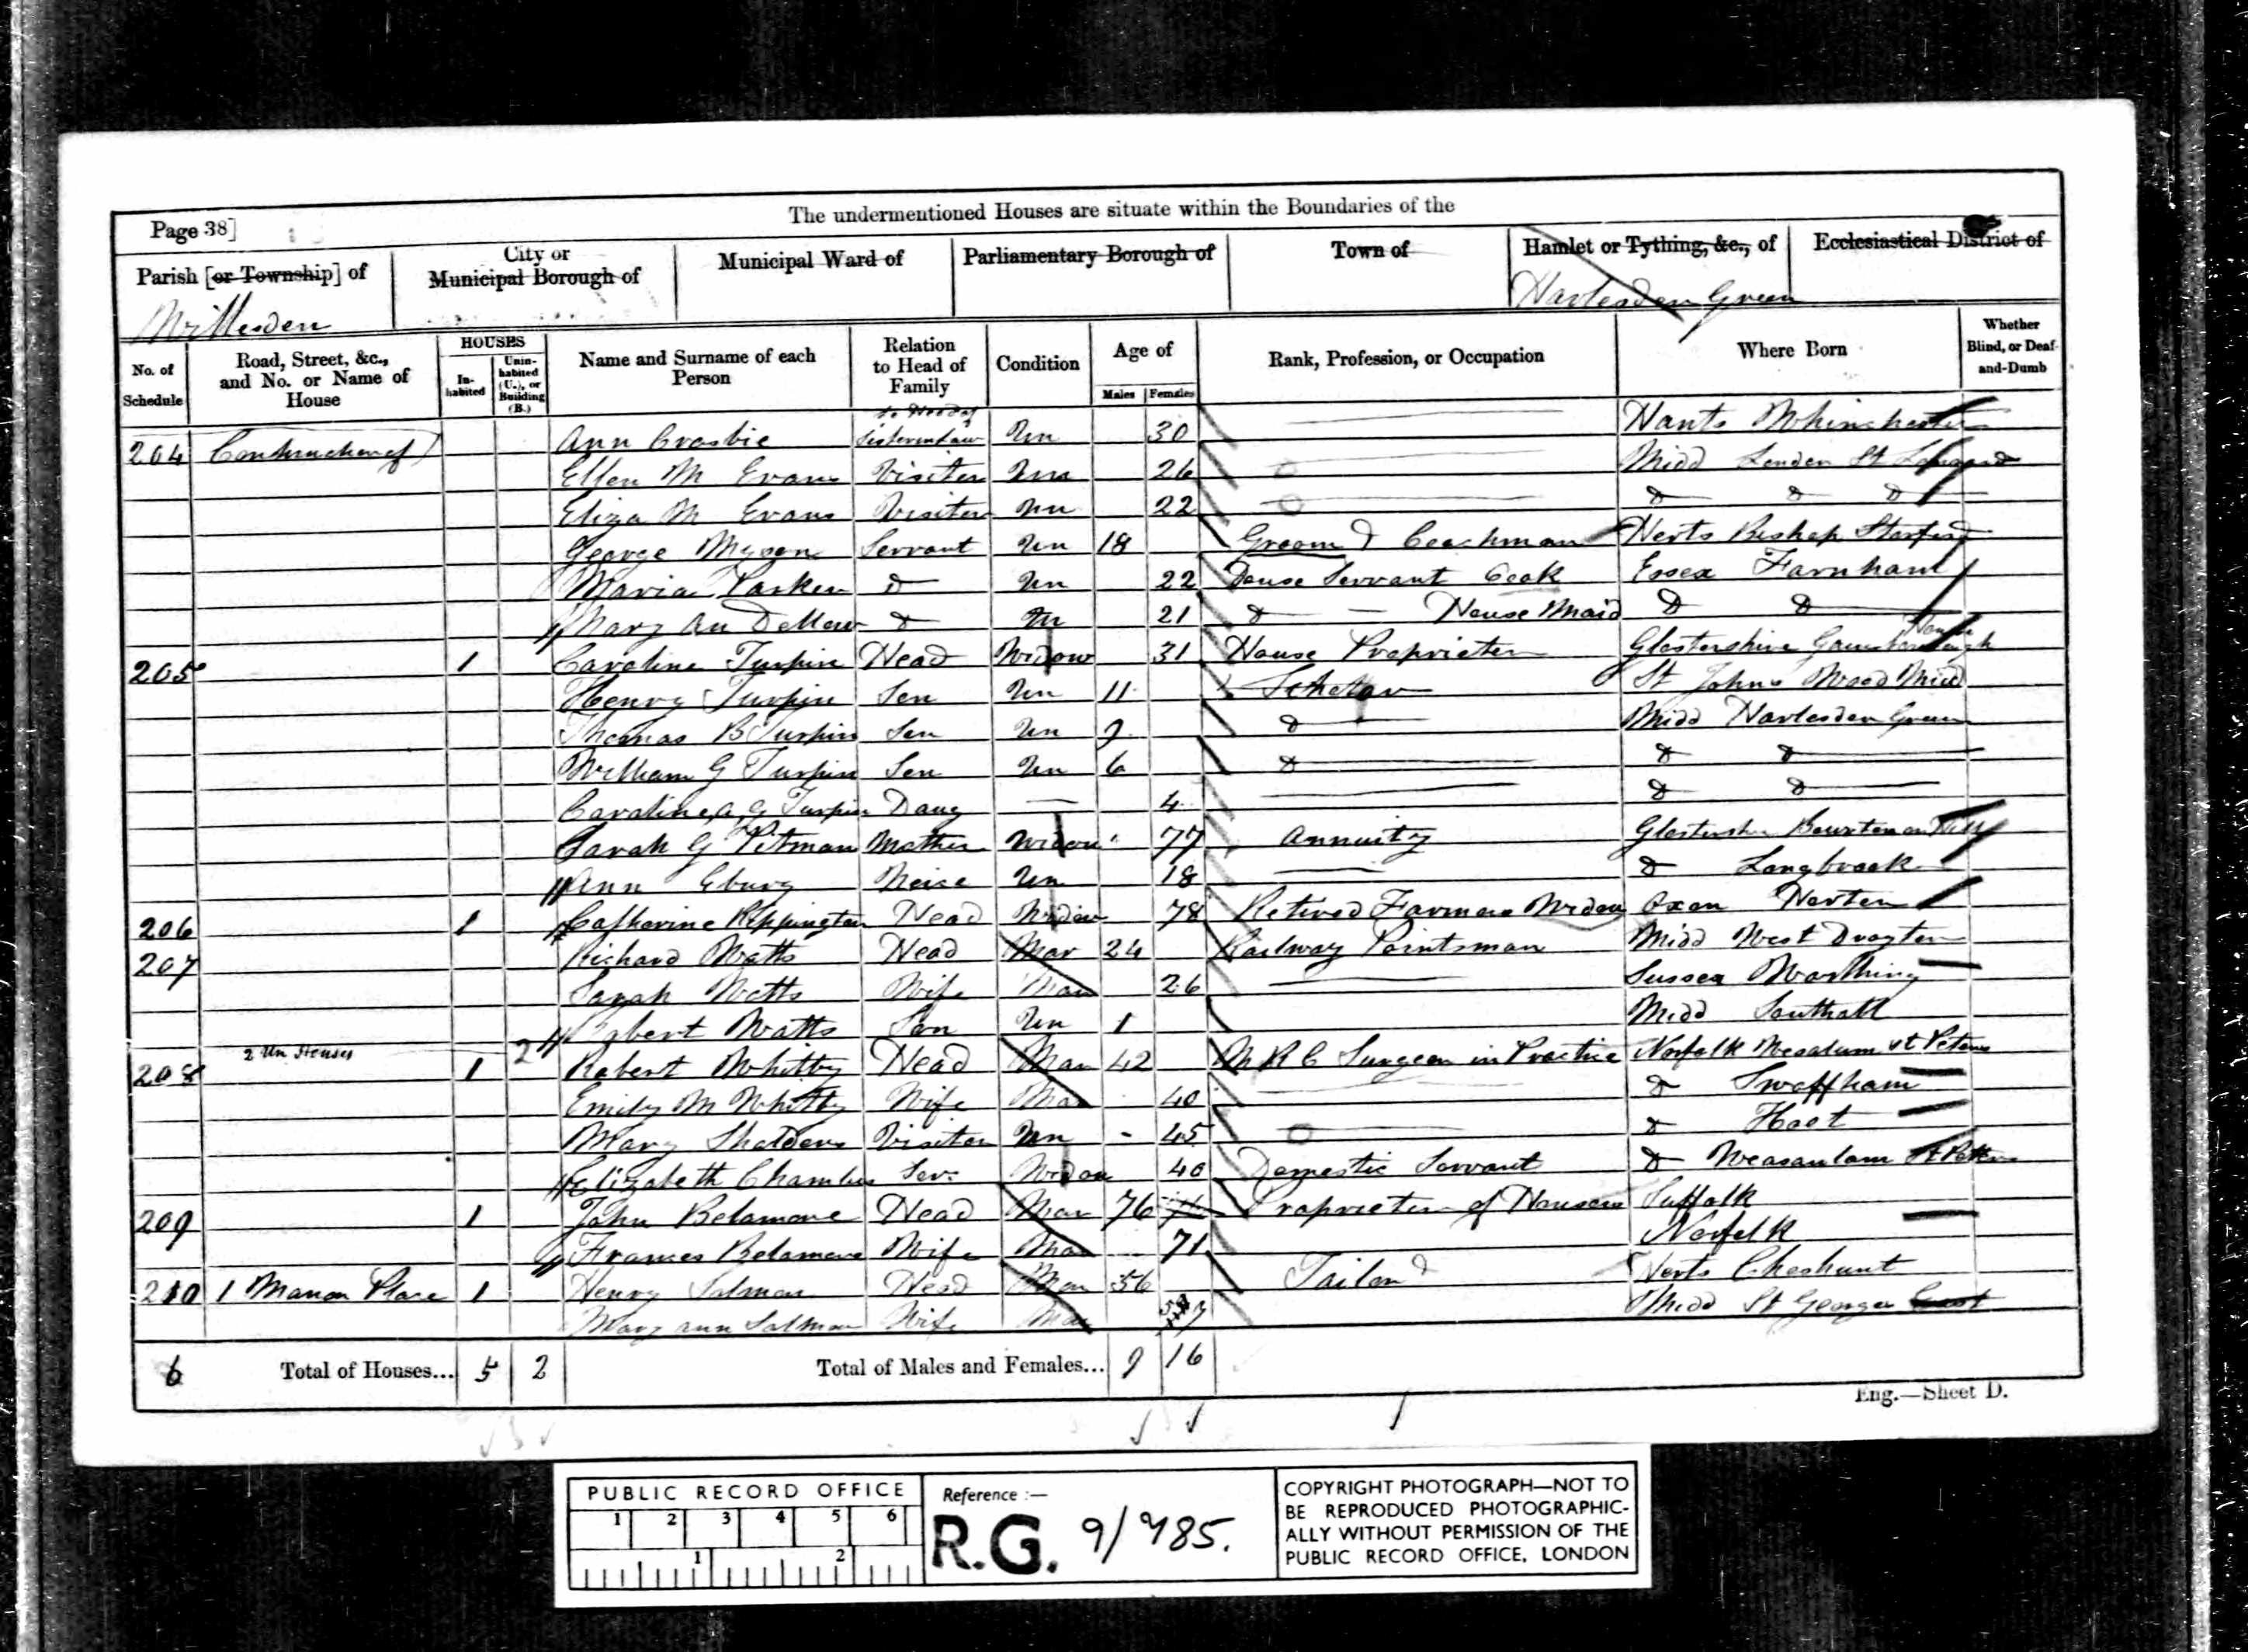 The undermentioned Houses are situate within the Boundaries of the
Page 38]
Parish [or Township] of
City or Municipal Borough of
Municipal Ward of
Parliamentary Borough of
Town of
Hamlet or Tything, &c., of
Ecclesiastical District of
Willesden
Harlesden Green
No. of Schedule
Road, Street, &c., and No. or Name of House
HOUSES
Inhabited
Uninhabited (U.), or Building (B.)
Name and Surname of each Person
Relation to Head of Family
Condition
Age of
Males
Females
Rank, Profession, or Occupation
Where Born
Whether Blind, or Deaf-and-Dumb
204 Ann Crosbie Sisterinlaw to Head of Un 30 Hants Whinchester
Ellen M Evans Visiter Un 26 Midd London St
Eliza M Evans Visiter Un 22 D D D
George Myson Servant Un 18 Groom & Coachman Herts Bishop Storford
Maria Parker D Un 22 House Servant Cook Essex Farnham
Mary An Dellow D Un 21 D House Maid D D
205 1 Caroline Turpin Head Widow 31 House Proprieter Glostershire
Henry Turpin Son Un 11 Scholar St Johns Wood Midd
Thomas B Turpin Son Un 9 D Midd Harlesden Green
William G Turpin Son Un 6 D D D
Caroline A G Turpin Daug 4 D D
Sarah G Pitman Mother Widow 77 Annuity Glostershr Bourton on
Ann Ebury Neice Un 18 D Longbrook
206 1 Catherine Reppington Head Widow 78 Retired Farmers Widow Oxon Norton
207 Richard Watts Head Mar 24 Railway Pointsman Midd West Drayton
Sarah Watts Wife Mar 26 Sussex Worthing
Watts Son Un 1 Midd Southall
2 Un Houses 2
208 1 Robert Whitby Head Mar 42 M R C Surgeon in Practice Norfolk St Peters
Emily M Whitby Wife Mar 40 D Swaffham
Mary Shalders Visiter Un 45 D
Elizabeth Chambers Ser Widow 40 Domestic Servant D
209 1 John Belamore Head Mar 76 Proprieter of Houses Suffolk
Frances Belamore Wife Mar 71 Norfolk
210 1 Manor Place 1 Henry Salmon Head Mar 56 Tailor Herts Cheshunt
Mary ann Salmon Wife Mar Midd St George East
6 Total of Houses... 5 2 Total of Males and Females... 9 16
Eng.—Sheet D.
PUBLIC RECORD OFFICE
1 2 3 4 5 6
1 2
Reference :—
R.G. 9/785.
COPYRIGHT PHOTOGRAPH—NOT TO
BE REPRODUCED PHOTOGRAPHIC-
ALLY WITHOUT PERMISSION OF THE
PUBLIC RECORD OFFICE, LONDON